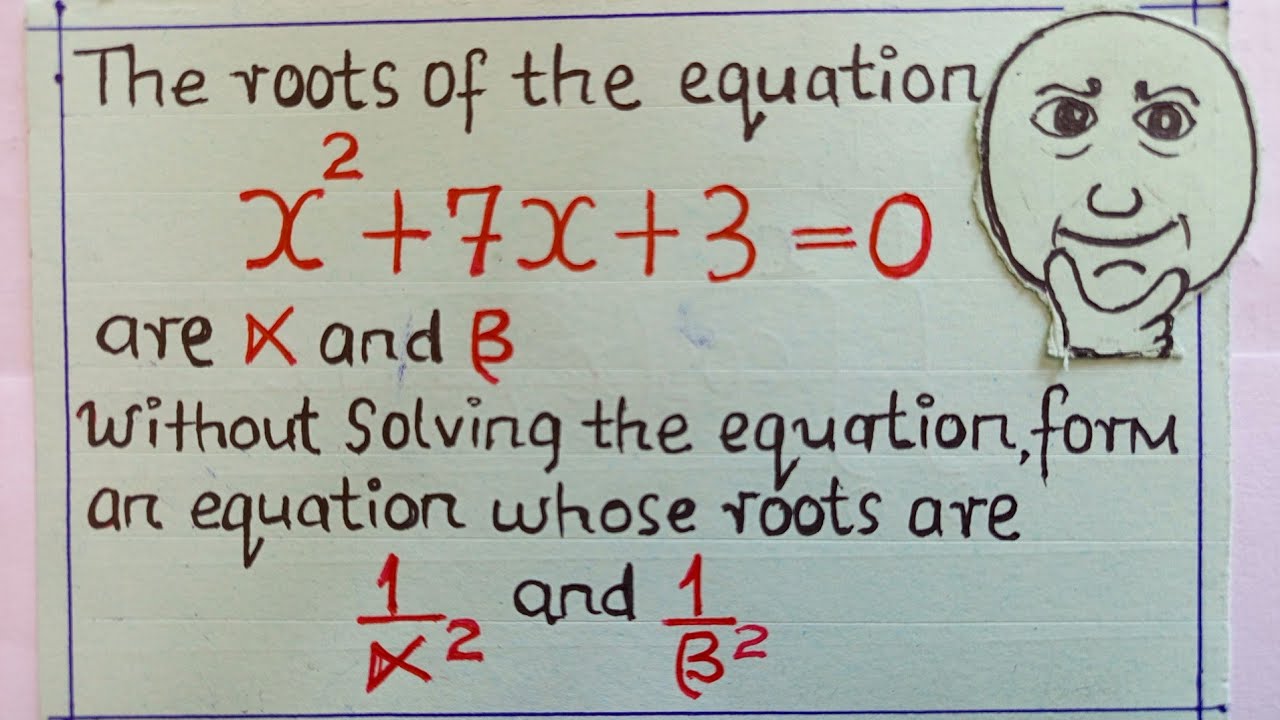 The roots of the equation
x² + 7x + 3 = 0
are α and β
Without Solving the equation, form
an equation whose roots are
1/α² and 1/β²